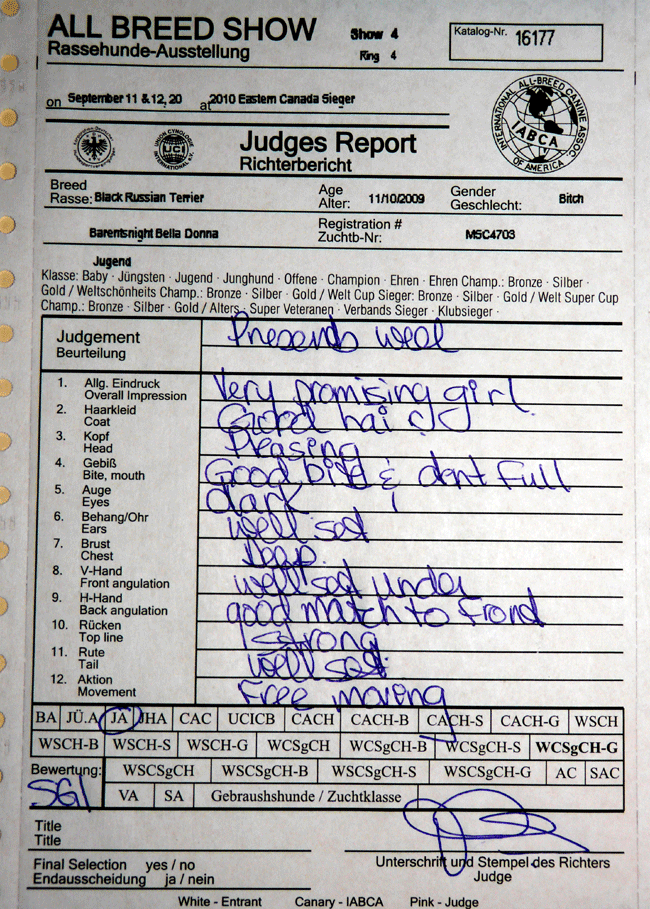 ALL BREED SHOW
Rassehunde-Ausstellung
Show 4
Ring 4
Katalog-Nr. 16177
on September 11 & 12, 20 at 2010 Eastern Canada Sieger
INTERNATIONAL ALL-BREED CANINE ASSOC. OF AMERICA
IABCA
UNION CYNOLOGIE INTERNATIONAL e.V.
UCI
Judges Report
Richterbericht
Breed
Rasse: Black Russian Terrier
Age
Alter: 11/10/2009
Gender
Geschlecht: Bitch
Barentsnight Bella Donna
Registration #
Zuchtb-Nr: M5C4703
Jugend
Klasse: Baby · Jüngsten · Jugend · Junghund · Offene · Champion · Ehren · Ehren Champ.: Bronze · Silber ·
Gold / Weltschönheits Champ.: Bronze · Silber · Gold / Welt Cup Sieger: Bronze · Silber · Gold / Welt Super Cup
Champ.: Bronze · Silber · Gold / Alters · Super Veteranen · Verbands Sieger · Klubsieger ·
Judgement
Beurteilung
Presents well
1. Allg. Eindruck
Overall Impression
Very promising girl
2. Haarkleid
Coat
Good hair
3. Kopf
Head
Pleasing
4. Gebiß
Bite, mouth
Good bite & dent full
5. Auge
Eyes
dark
6. Behang/Ohr
Ears
well set
7. Brust
Chest
Deep
8. V-Hand
Front angulation
well set under
9. H-Hand
Back angulation
good match to front
10. Rücken
Top line
strong
11. Rute
Tail
well set
12. Aktion
Movement
Free moving
BA JÜ.A JA JHA CAC UCICB CACH CACH-B CACH-S CACH-G WSCH
WSCH-B WSCH-S WSCH-G WCSgCH WCSgCH-B WCSgCH-S WCSgCH-G
Bewertung: WSCSgCH WSCSgCH-B WSCSgCH-S WSCSgCH-G AC SAC
SG1 VA SA Gebraushshunde / Zuchtklasse
Title
Title
Final Selection yes / no
Endausscheidung ja / nein
Unterschrift und Stempel des Richters
Judge
White - Entrant Canary - IABCA Pink - Judge